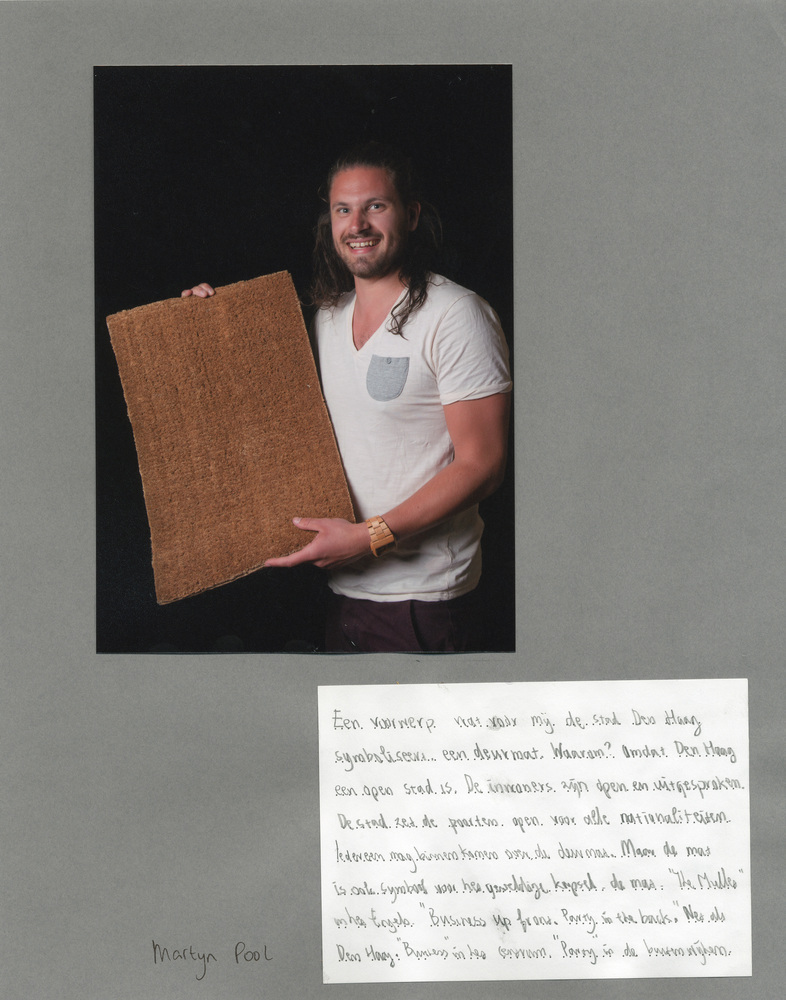 Een voorwerp wat voor mij de stad Den Haag
symboliseert.. een deurmat. Waarom? Omdat Den Haag
een open stad is. De inwoners zijn open en uitgesproken.
De stad zet de poorten open voor alle nationaliteiten.
Iedereen mag binnen komen over de deurmat. Maar de mat
is ook symbool voor het geweldige kapsel, de mat. "The Mullet"
in het Engels. "Business up front. Party in the back." Net als
Den Haag: "Business" in het centrum. "Party" in de buitenwijken.
Martyn Pool